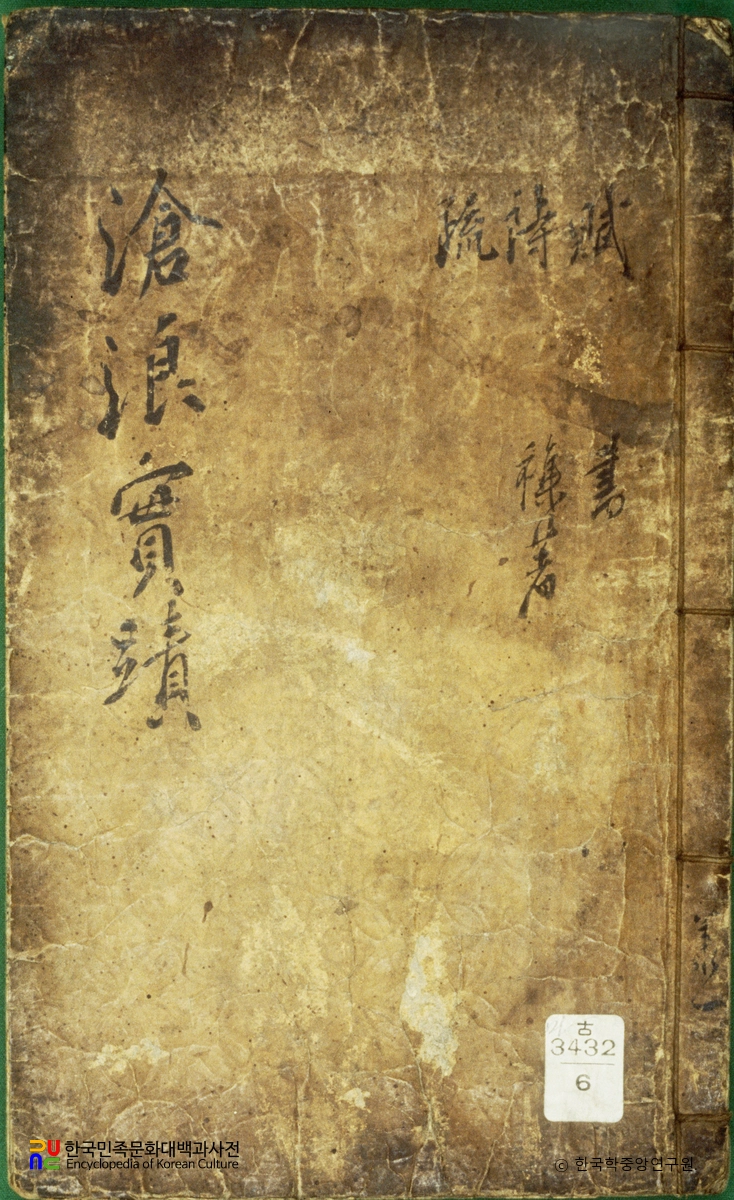 滄浪實蹟
賦詩疏
書
雜著
古
3432
6
한국민족문화대백과사전
Encyclopedia of Korean Culture
© 한국학중앙연구원